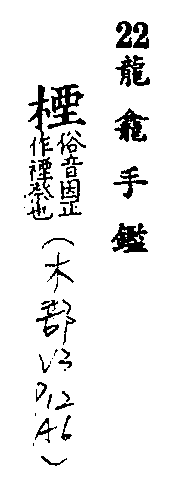 22龍龕手鑑
㮒俗音因正作禋祭也(木部V3P12A6)